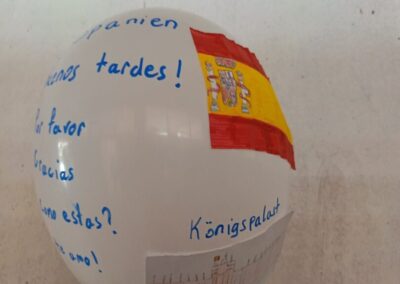 panien
uenos tardes!
Por favor
Gracias
Como estas?
amo!
Königspalast